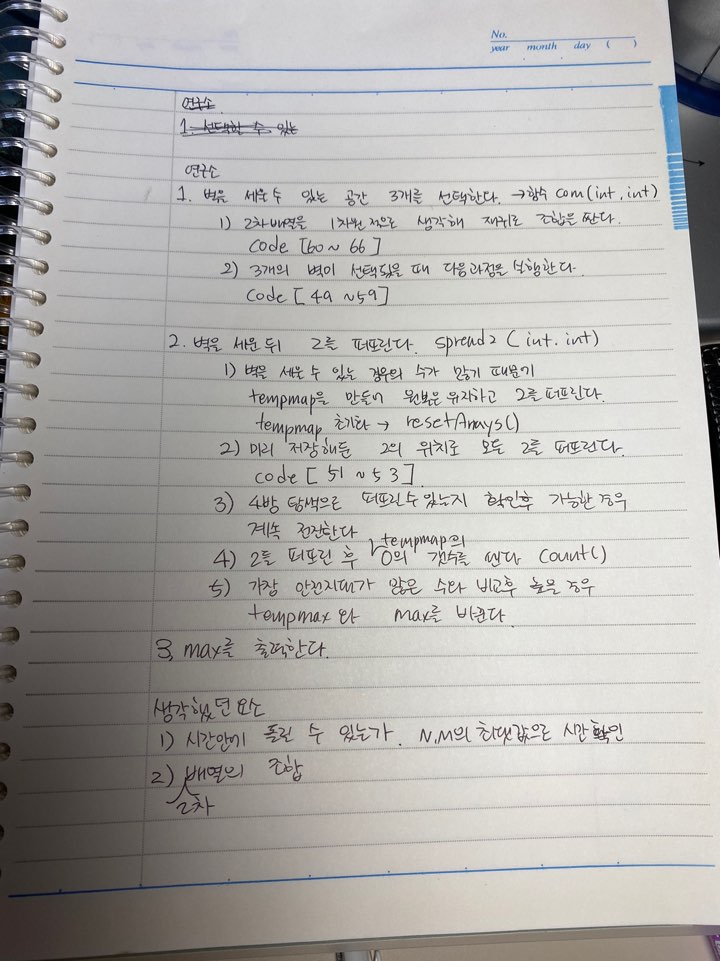 No.
year month day ( )
연구소
1. 선택할 수 있는
연구소
1. 벽을 세울 수 있는 공간 3개를 선택한다. → 함수 com(int, int)
1) 2차배열을 1차원적으로 생각해 재귀로 조합을 짠다.
code [60 ~ 66]
2) 3개의 벽이 선택됬을 때 다음과정을 실행한다.
code [ 49 ~ 59]
2. 벽을 세운 뒤 2를 퍼프린다. spread2 ( int. int)
1) 벽을 세울 수 있는 경우의 수가 많기 때문에
tempmap을 만들어 원본은 유지하고 2를 퍼프린다.
tempmap 초기화 → resetArrays()
2) 미리 저장해둔 2의 위치로 모든 2를 퍼프린다.
code [ 51 ~ 53 ].
3) 4방 탐색으로 퍼프릴수 있는지 확인후 가능한 경우
계속 전진한다
4) 2를 퍼프린 후 tempmap의 0의 갯수를 센다 count()
5) 가장 안전지대가 많은 수와 비교후 높을 경우
tempmax와 max를 바꾼다.
3. max를 출력한다.
생각했던 요소
1) 시간안에 돌릴 수 있는가. N,M의 최댓값으로 시간 확인
2) 2차 배열의 조합